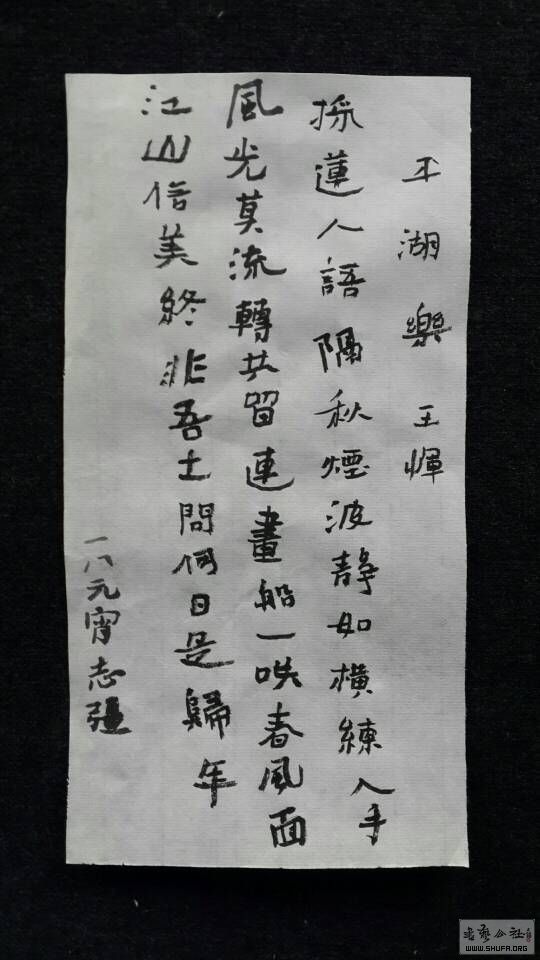 平湖樂 王惲
採蓮人語隔秋煙波靜如橫練入手
風光莫流轉共留連畫船一咲春風面
江山信美終非吾土問何日是歸年
一八元宵志強
书艺公社
WWW.SHUFA.ORG